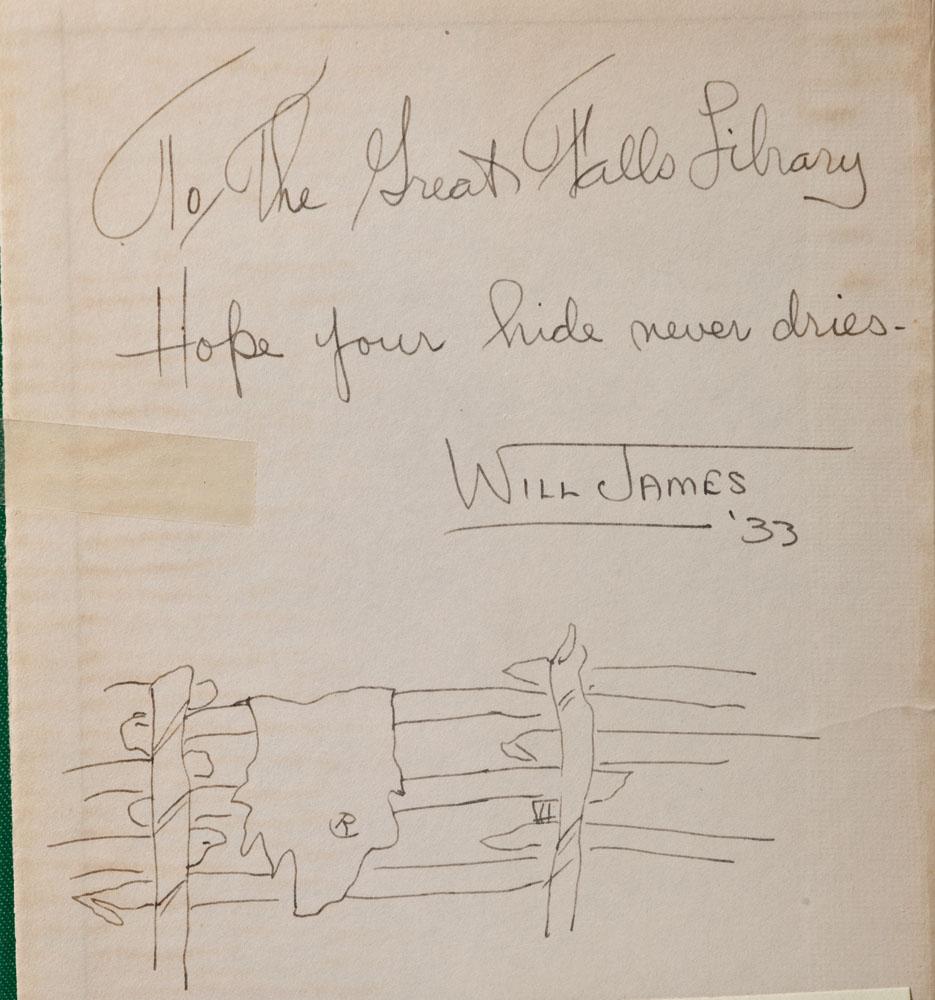 To The Great Falls Library
Hope your hide never dries-
WILL JAMES
'33
R